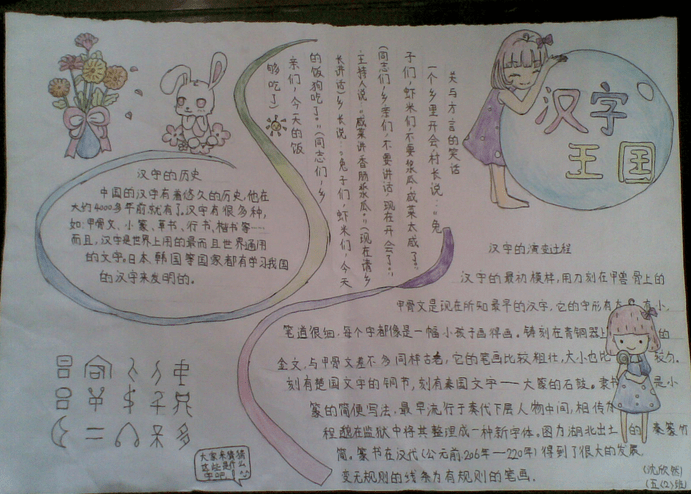 汉字王国
关与方言的笑话
一个乡里开会,村长说:“兔
子们,虾米们,不要浆瓜,咸菜太咸了。”
(同志们,乡亲们,不要讲话,现在开会了。)
主持人说:“咸菜请香肠浆瓜。”(现在请乡
长讲话)乡长说:“兔子们,虾米们,今天
的饭狗吃了。”(同志们,乡
亲们,今天的饭
够吃了)
汉字的历史
中国的汉字有着悠久的历史,他在
大约4000多年前就有了,汉字有很多种,
如:甲骨文、小篆、草书、行书、楷书等……
而且,汉字是世界上用的最而且世界通用
的文字,日本、韩国等国家都有学习我国
的汉字来发明的。
汉字的演变过程
汉字的最初模样,用刀刻在甲兽骨上的
甲骨文是现在所知最早的汉字,它的字形有 小,
笔道很细,每个字都像是一幅小孩子画得画。铸刻在青铜器上 的
金文,与甲骨文差不多同样古老,它的笔画比较粗壮,大小也比 较匀。
刻有楚国文字的铜节,刻有秦国文字——大篆的石鼓。 是小
篆的简便写法,最早流行于秦代下层人物中间,相传
程邈在监狱中将其整理成一种新字体。图为湖北出土的 秦篆竹
简。篆书在汉代(公元前206年—220年)得到了很大的发展
变无规则的线条为有规则的笔画。
大家来猜猜
这些是什么
字吧
(沈欣然)
(五(2)班)